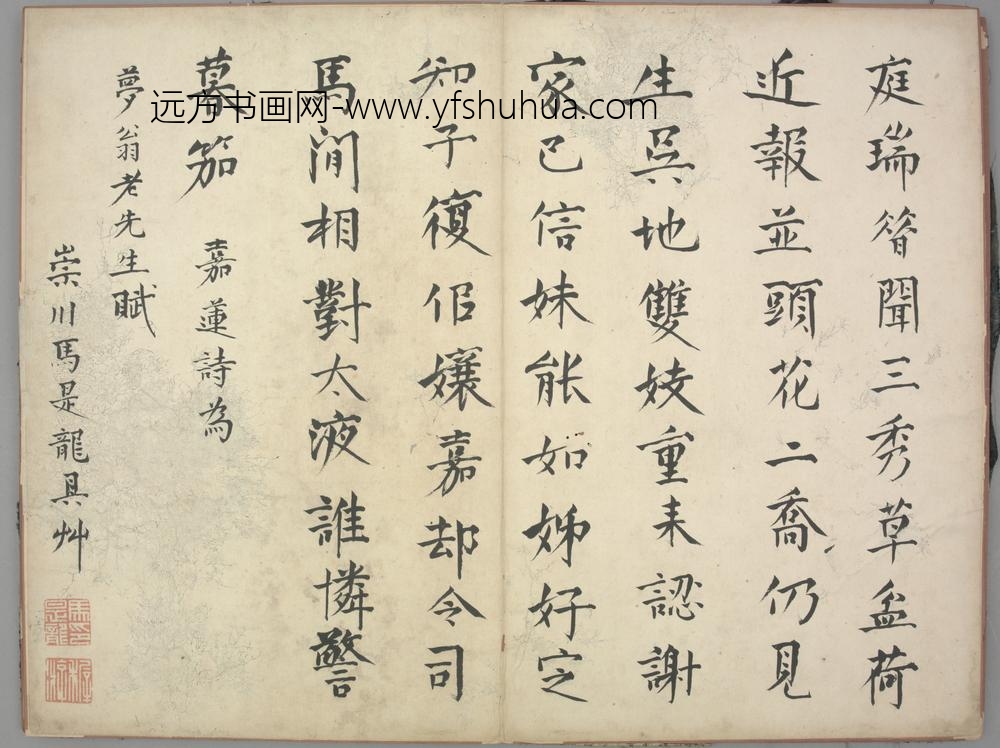 庭瑞昝聞三秀草盆荷
近報並頭花二喬仍見
生吳地雙妓重来認謝
家已信妹能如姊好定
知子復侣孃嘉却令司
馬閒相對太液誰憐警
暮笳
嘉蓮詩為
夢翁老先生賦
崇川馬是龍具艸
远方书画网-www.yfshuhua.com